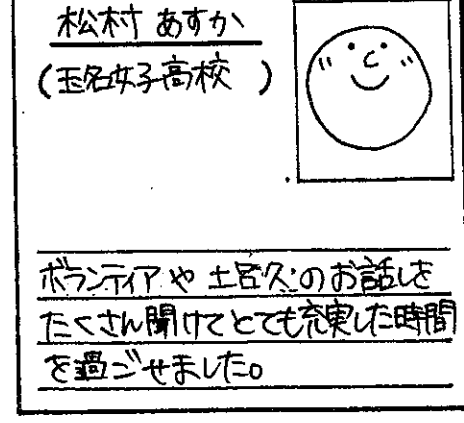 松村 あすか
(玉名女子高校 )
ボランティア や 土呂久のお話しを
たくさん聞けてとても充実した時間
を過ごせました。